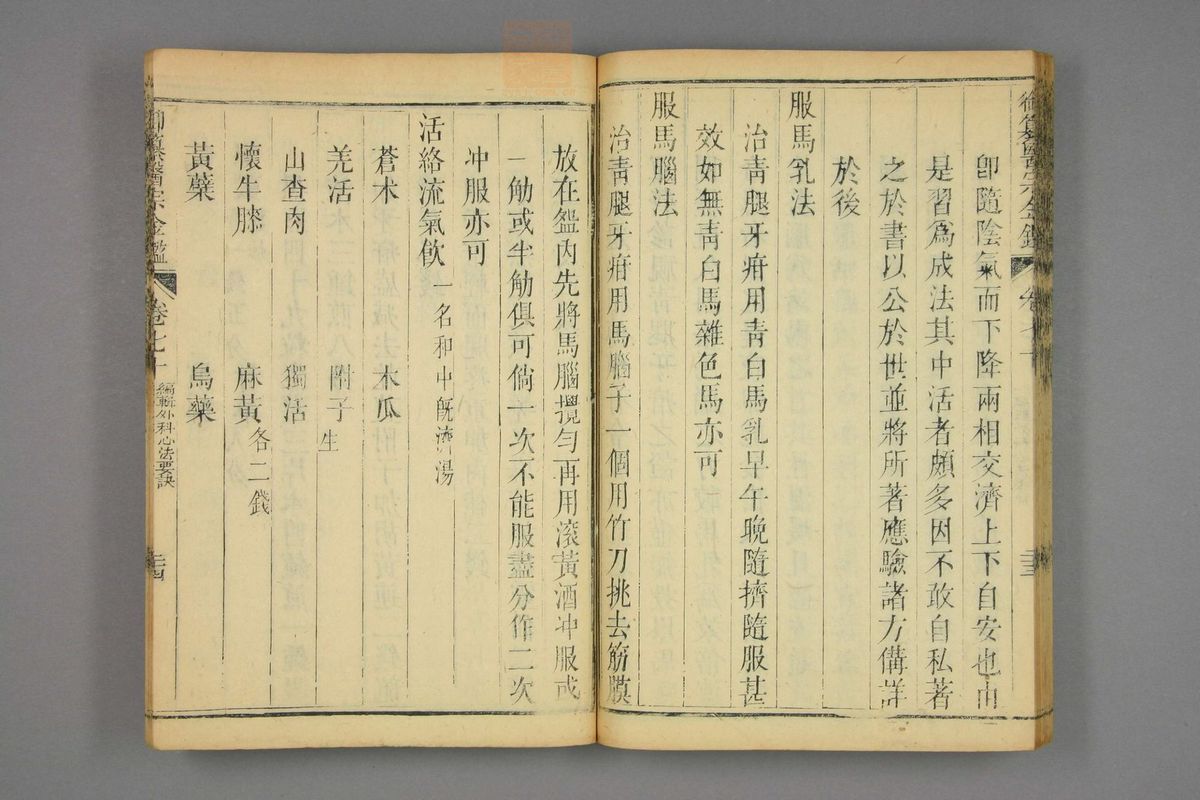 御纂醫宗金鑑
卷七十
卽隨陰氣而下降兩相交濟上下自安也由
是習爲成法其中活者頗多因不敢自私著
之於書以公於世並將所著應驗諸方備詳
於後
服馬乳法
治靑腿牙疳用靑白馬乳早午晚隨擠隨服甚
效如無靑白馬雜色馬亦可
服馬腦法
治靑腿牙疳用馬腦子一個用竹刀挑去筋膜
放在盌內先將馬腦攪勻再用滾黃酒冲服或
一觔或半觔俱可倘一次不能服盡分作二次
冲服亦可
活絡流氣飲 一名和中旣濟湯
蒼术 木瓜
羌活 附子生
山查肉 獨活
懷牛膝 麻黃各二錢
黃蘗 烏藥
御纂醫宗金鑑
卷七十 編輯外科心法要訣